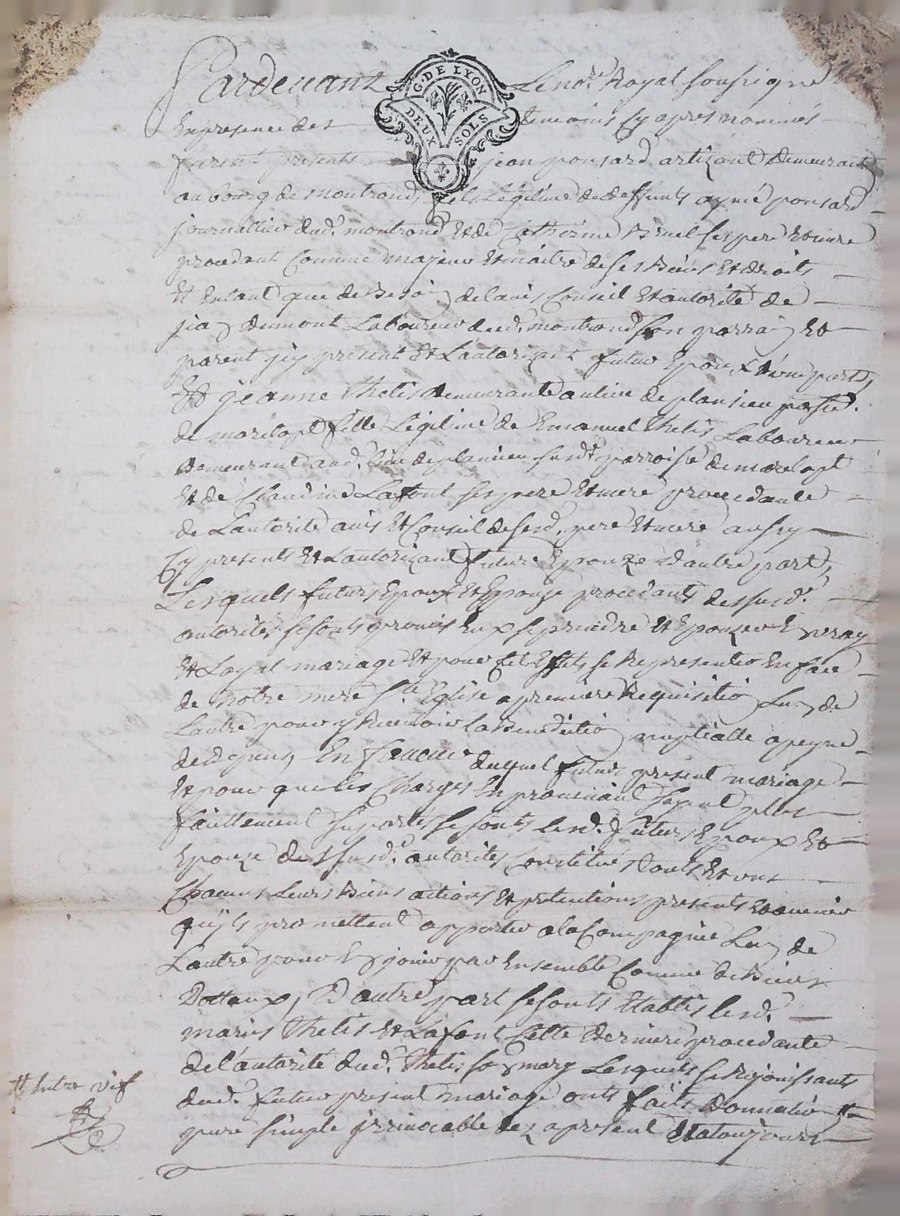 Pardevant Le nore. Royal soussigné
G. DE LYON
DEUX SOLS
En presence des temoins cy apres nommés
furent presents jean ponsard artizant demeurant
au bourg de montrond, fils Legitime de deffunts aymé ponsard
journallier dud. montrond Et de Catherine ses pere Et mere
procedant Comme majeur Et maitre de ses Biens Et droits
Et Entant que de Besoin de lavis Conseil Et autorité de
dumont Laboureur dud. montrond son parrain Et
parent icy present Et Lautorizant futur Epoux d'une part,
Et jeanne thetis demeurante au lieu de plancieu parsse.
de marclopt fille Legitime de Emanuel thetis Laboureur
demeurant aud. lieu de plancieu susd. parroisse de marclopt
Et de Claudine Lafont ses pere Et mere procedante
de Lautorité avis Et Conseil de sesd. pere Et mere aussy
Cy presents Et Lautorizant future Epouze d'autre part,
Lesquels futurs Epoux Et Epouze procedants dessusd.
autorités se sont promis Eux se prendre Et Epouzer En vray
Et Loyal mariage Et pour cet Effet se Representer En face
de notre mere ste. Eglise a premiere Requisition Lun de
Lautre pour y Recevoir la Benediction nuptialle a peyne
de Depens, En faveur duquel futur present mariage
Et pour que les Charges En provenant soyent plus
facillement suportés se sont lesd. futurs Epoux Et
Epouze de susd. autorités Constitué tous Et uns
Chacuns Leurs Biens actions Et pretentions presents Et avenir
qu'ils promettent apporter a la Compagnie Lun de
Lautre pour En jouir par Ensemble Comme de Biens
Dottaux, D'autre part se sont Etablis lesd.
mariés thetis Et Lafont Cette derniere procedante
de l'autorité dud. thetis son mary Lesquels se Rejouissants
dud. futur present mariage ont fait Donnation #
pure simple irrevocable des a present Et a toujours
# Entre vif